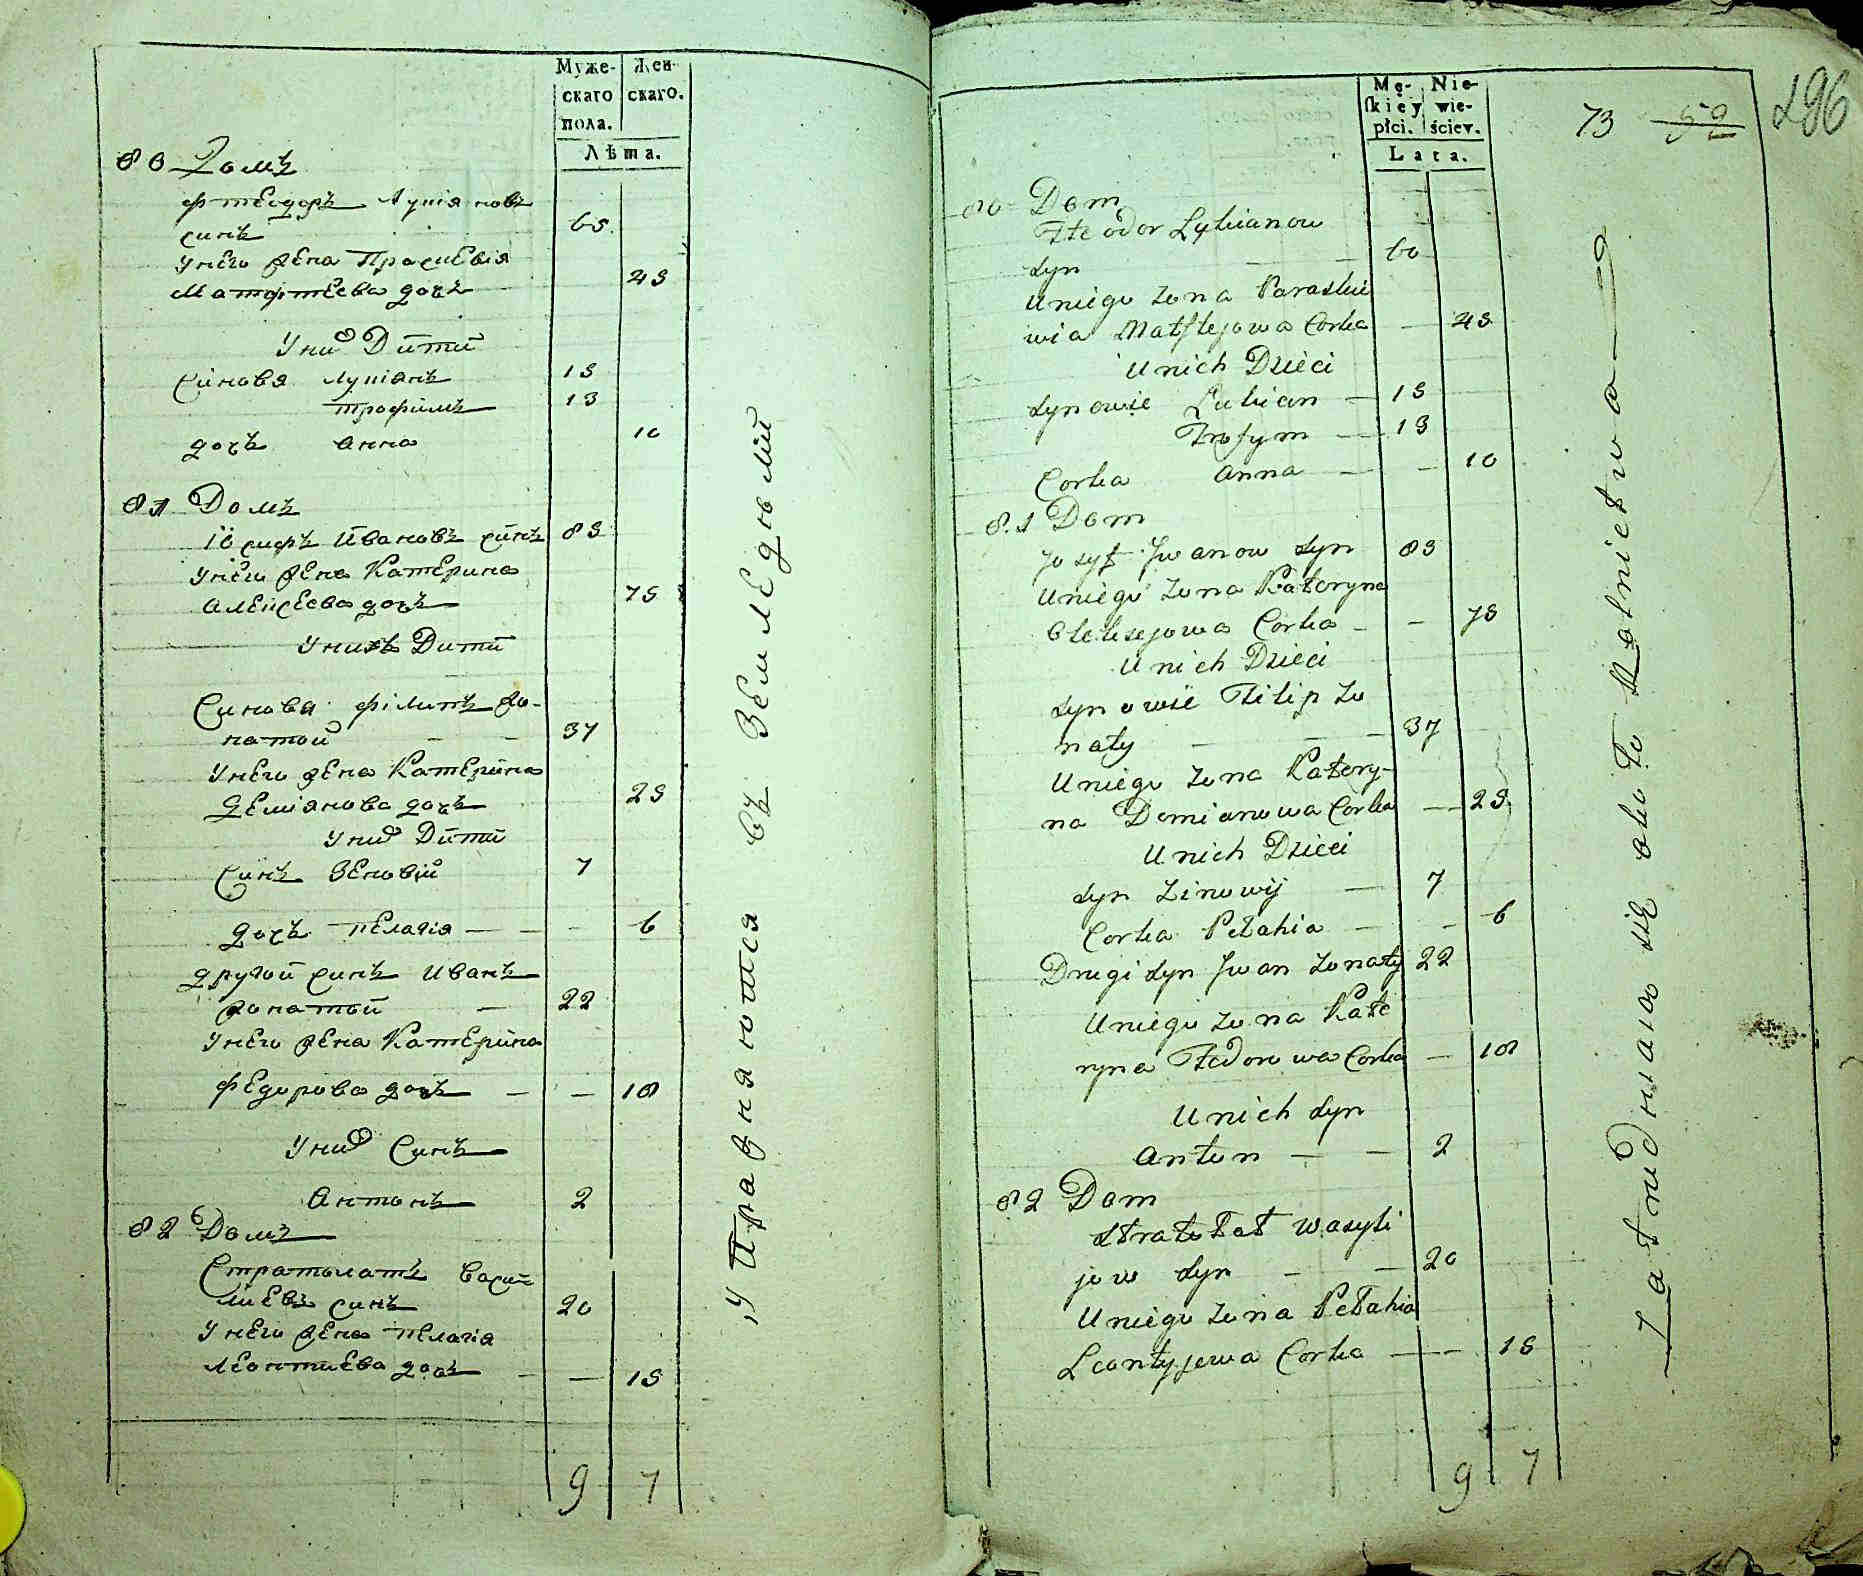 Муже-
скаго
пола.
Жен-
скаго.
Лѣта.
80 Домъ
Фтеодоръ Лукіяновъ
синъ 65
У него жена Праскевія
Матфтеева дочь 45
У них Дити
Синовя Лукіянъ 15
Трофимъ 13
дочь Анна 10
81 Домъ
Іосифъ Ивановъ синъ 85
У него жена Катерина
Алексеева дочь 75
У нихъ Дити
Синовя Філипъ жо-
натой 37
У него жена Катерина
Демянова дочь 25
У них Дити
Синъ Зеновій 7
дочь Пелагія 6
другой синъ Иванъ
жонатой 22
У него жена Катерина
Федорова дочь 18
У них Синъ
Антонъ 2
82 Домъ
Стратилатъ Васи-
лиевъ синъ 20
У него жена Пелагія
Леонтиева дочь 15
9 7
Упражняются въ Земледѣлій
Mę-
skiéy
płci.
Nie-
wie-
ściey.
Lata.
73 59
296
80 Dom
Fteodor Lykianow
syn 60
Uniego zona Paraskie
wia Matftejowa Corka 45
Unich Dzieci
synowie Lukian 15
Trofym 13
Corka Anna 10
81 Dom
Josyf Jwanow syn 85
Uniego zona Kateryna
Oleksejowa Corka 75
Unich Dzieci
synowie Filip zo
naty 37
Uniego zona Katery-
na Demianowa Corka 25
Unich Dzieci
syn Zinowij 7
Corka Pełahia 6
Drugi syn Jwan zonaty 22
Uniego zona Kate
ryna Fedorowa Corka 18
Unich syn
Anton 2
82 Dom
Stratełat Wasyli
jow syn 20
Uniego zona Pełahia
Leontyjewa Corka 15
9 7
Zatrudniaio się około Rolnictwa